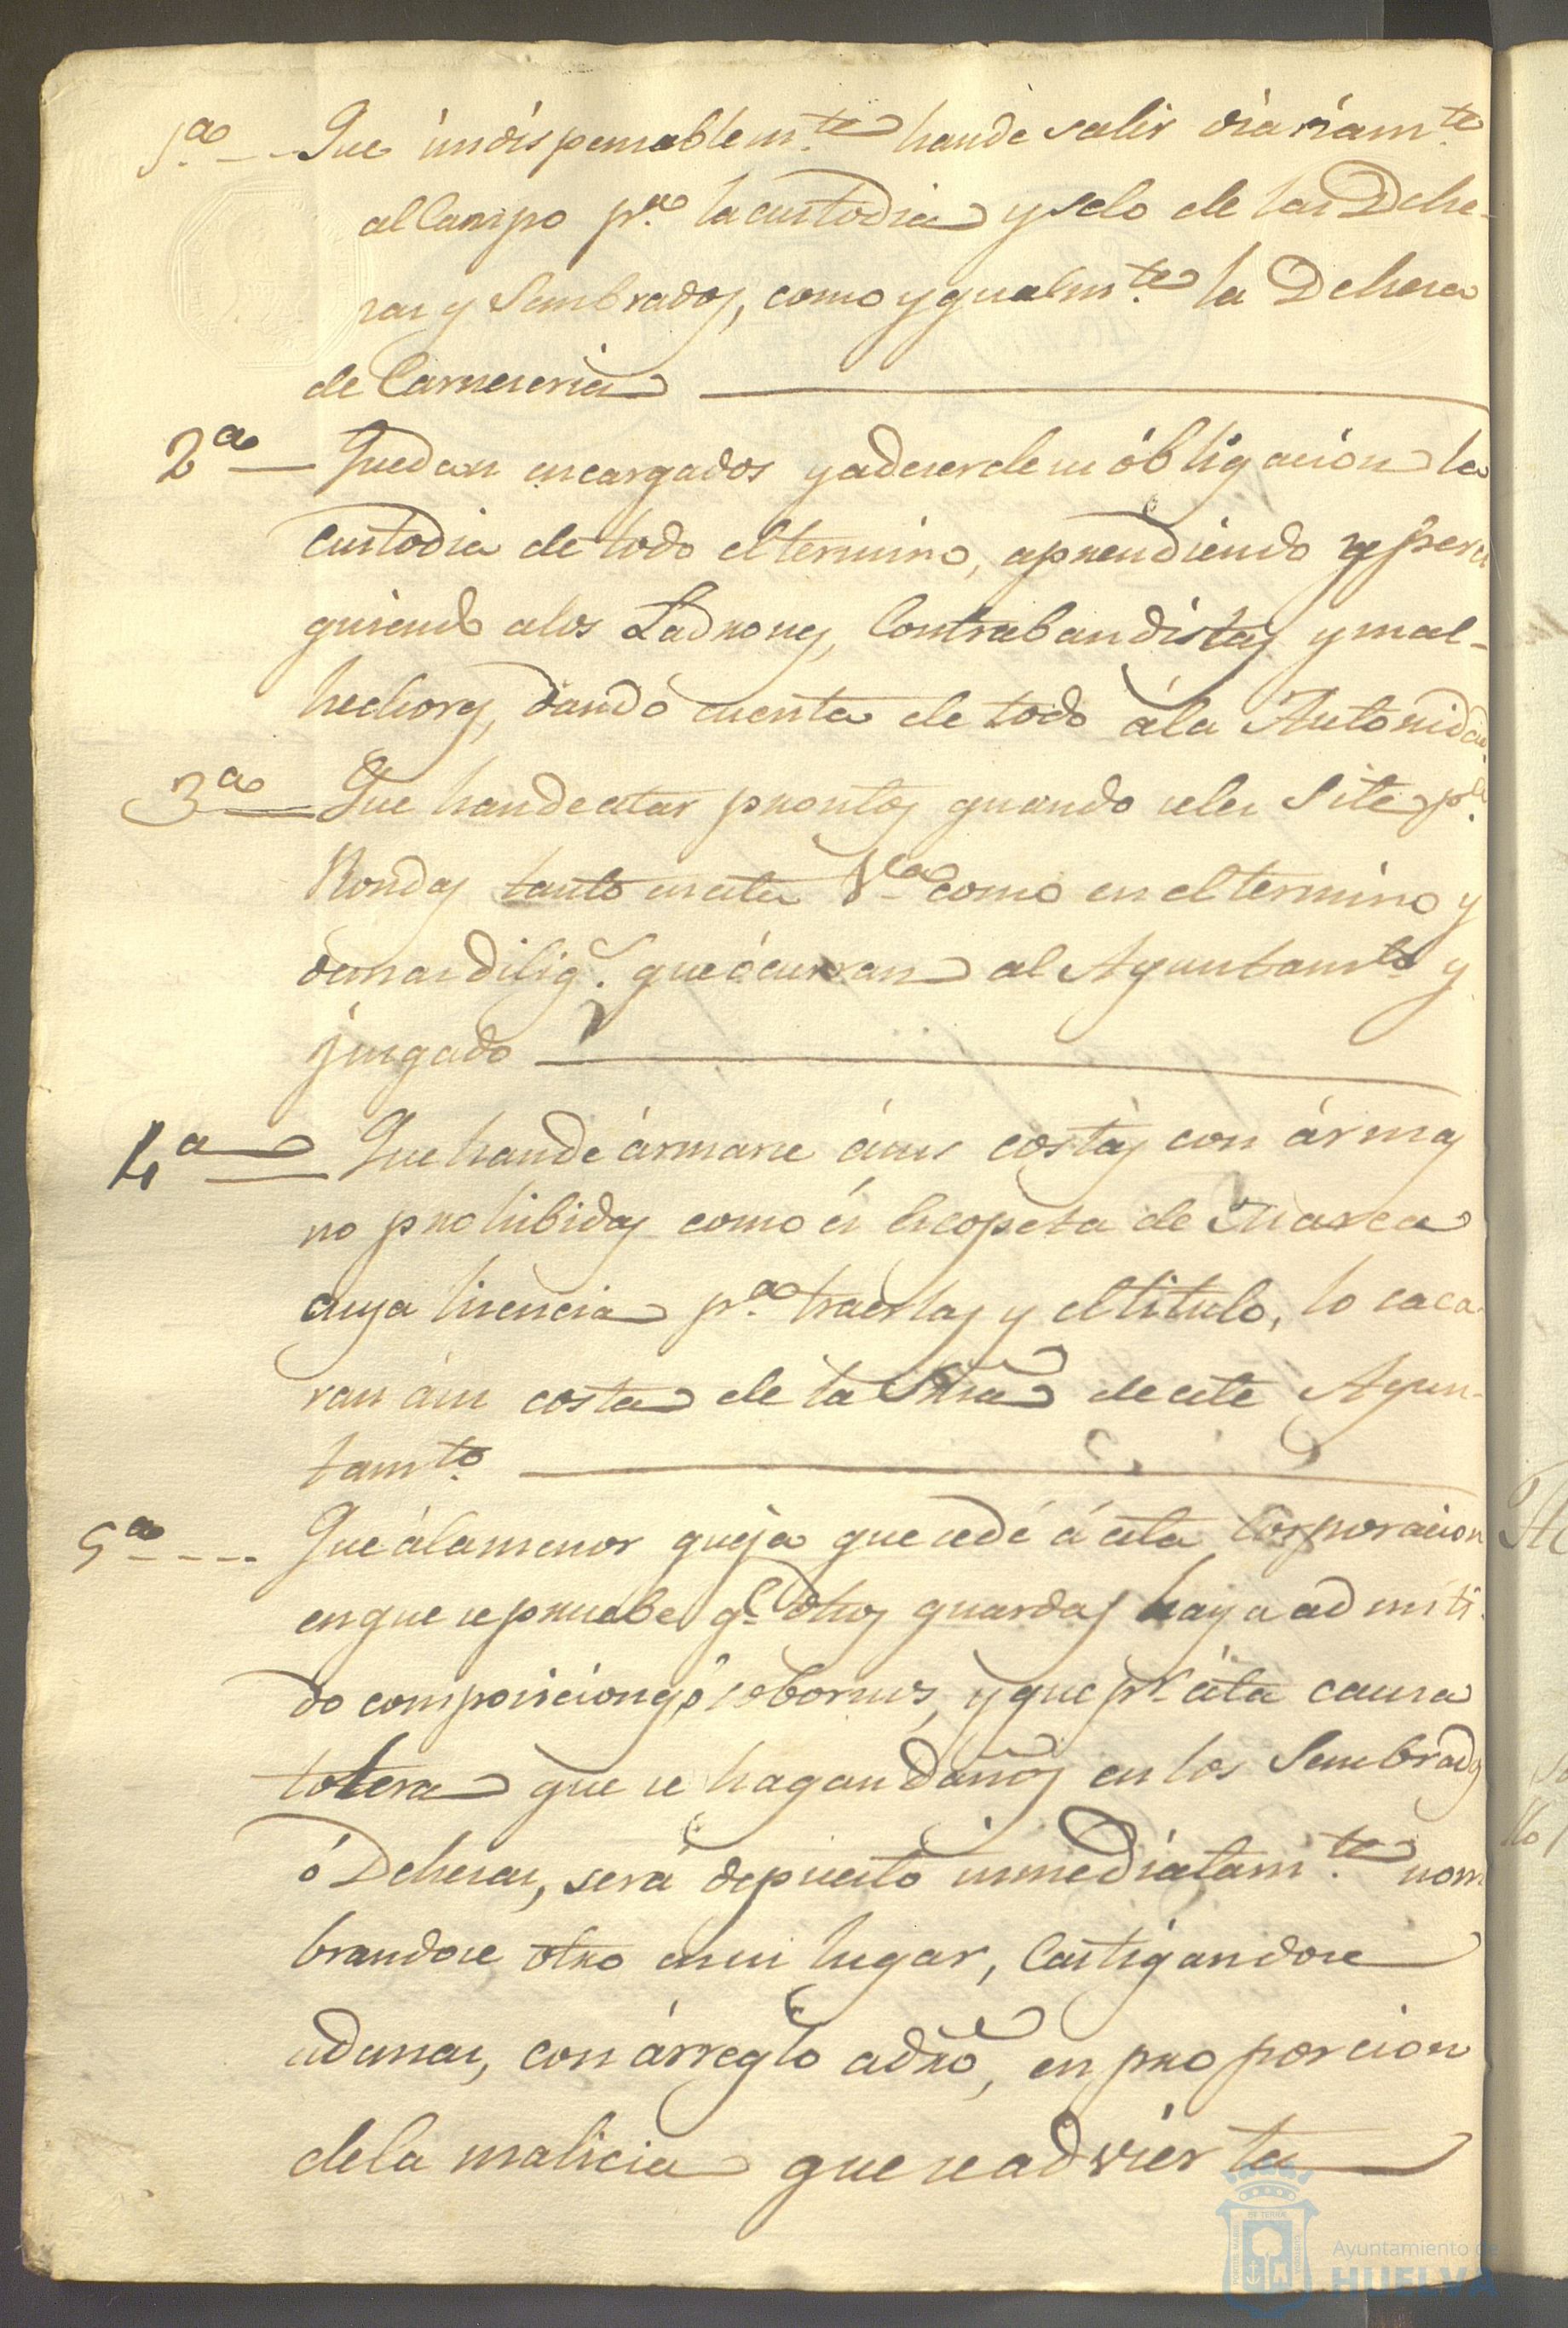 1.ª -- Que indispensablem.te hande salir diariam.te
al Campo p.ª la custodia y selo de las Dehe-
sas y Sembrados, como ygualm.te la Dehesa
de Carneseria
2ª Quedan encargados y adeserdesu óbligacion la
Custodia de todo el termino, aprendiendo y persi
guiendo alos Ladrones, Contrabandistas y mal-
hechores, dando cuenta de todo ála Autoridad.
3ª Que handeestar prontos quando seles Site p.ª
Rondas tanto enesta Vª como en el termino y
demas dilig.s que ócurran al Ayuntamto y
juzgado
4ª Que hande ármarse ásus costas con ármas
no prohibidas como és Escopeta de Marca
cuya lisencia p.ª traerlas y el titulo, lo saca
ran ásu costa de la Sria de este Ayun-
tamto.
5ª ---- Que álamenor queja que sedé á esta Corporacion
enque sepruebe q.e dhos guardas haya admiti-
do composiciones, ó sobornos, y que pr ésta causa
tolera que se hagan daños en los Sembrados
ó Dehesas, será depuesto inmediatam.te nom
brandose otro ensu lugar, Castigandose
ademas, con árreglo adro, en proporcion
dela malicia que seadvierta
Ayuntamiento de
HUELVA